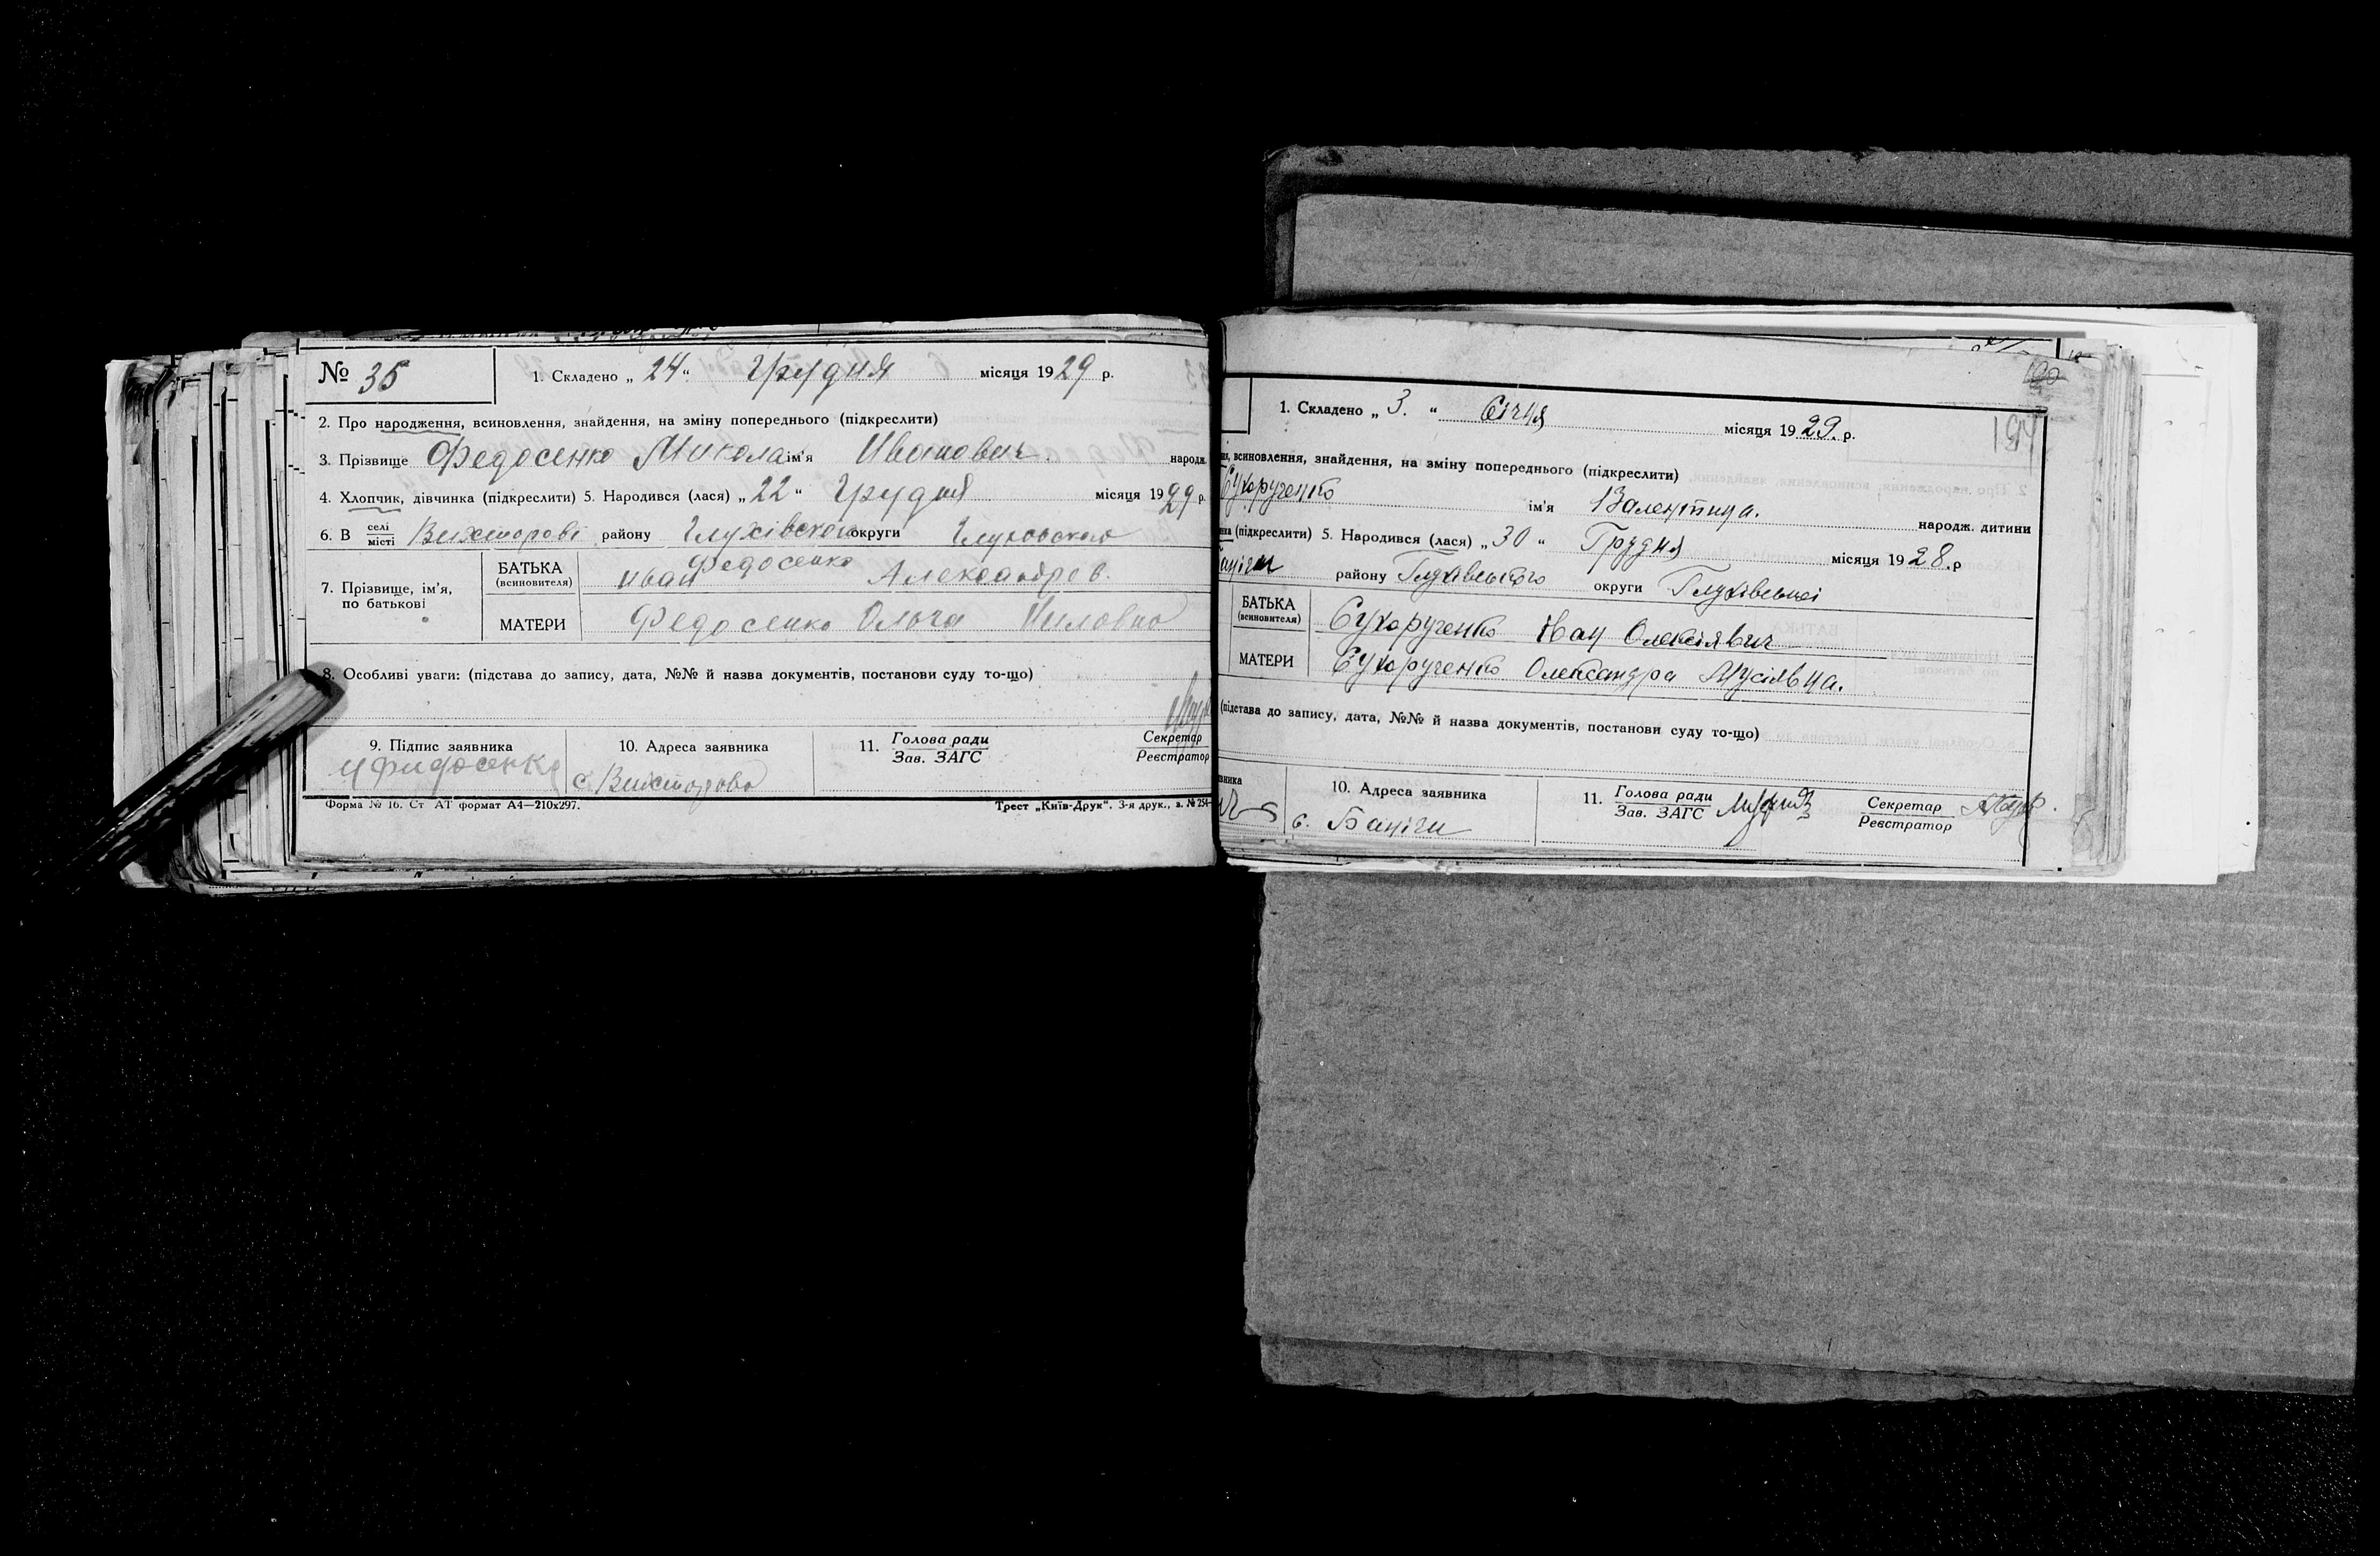 № 35
1. Складено „ 24 “ Грудня місяця 1929 р.
2. Про народження, всиновлення, знайдення, на зміну попереднього (підкреслити)
3. Прізвище Федосенко Микола ім'я Иванович народж.
4. Хлопчик, дівчинка (підкреслити) 5. Народився (лася) „ 22 “ Грудня місяця 1929 р.
6. В селі місті Викторові району Глухівского округи Глуховского
7. Прізвище, ім'я, по батькові
БАТЬКА (всиновителя) Федосенко иван Александров.
МАТЕРИ Федосенко Ольга
8. Особливі уваги: (підстава до запису, дата, №№ й назва документів, постанови суду то-що)
9. Підпис заявника
И Фидосенко
10. Адреса заявника
с. Викторово
11. Голова ради
Зав. ЗАГС
Секретар
Реєстратор
Форма № 16. Ст АТ формат А4—210х297.
Трест „Київ-Друк“. 3-я друк., з. № 254-
194
1. Складено „ 3. “ Січня місяця 1929. р.
всиновлення, знайдення, на зміну попереднього (підкреслити)
Сухорученко ім'я Валентина. народж. дитини
(підкреслити) 5. Народився (лася) „ 30 “ Грудня місяця 1928. р
району Глухівського округи Глухівської
БАТЬКА (всиновителя) Сухорученко Іван Олексіявич
МАТЕРИ Сухорученко Олександра Мусіявна.
(підстава до запису, дата, №№ й назва документів, постанови суду то-що)
10. Адреса заявника
с. Банічи
11. Голова ради
Зав. ЗАГС
Секретар
Реєстратор